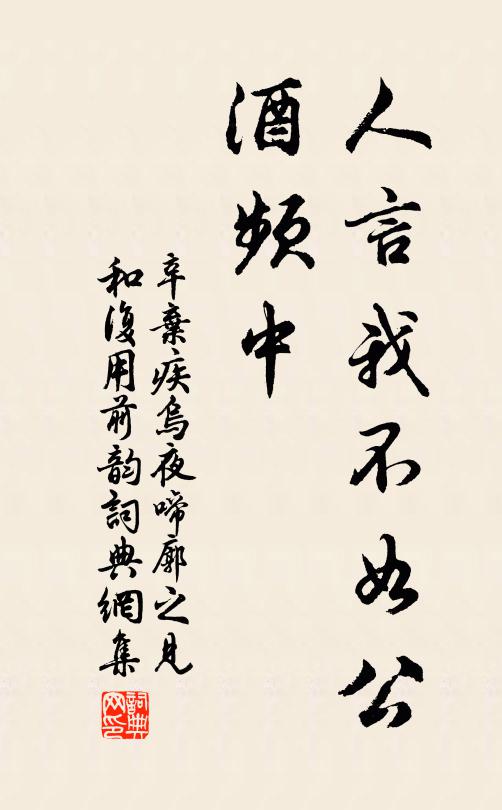 人言我不如公
酒頻中
辛棄疾烏夜啼廓之見
和復用前韵詞典網集
詞典网印